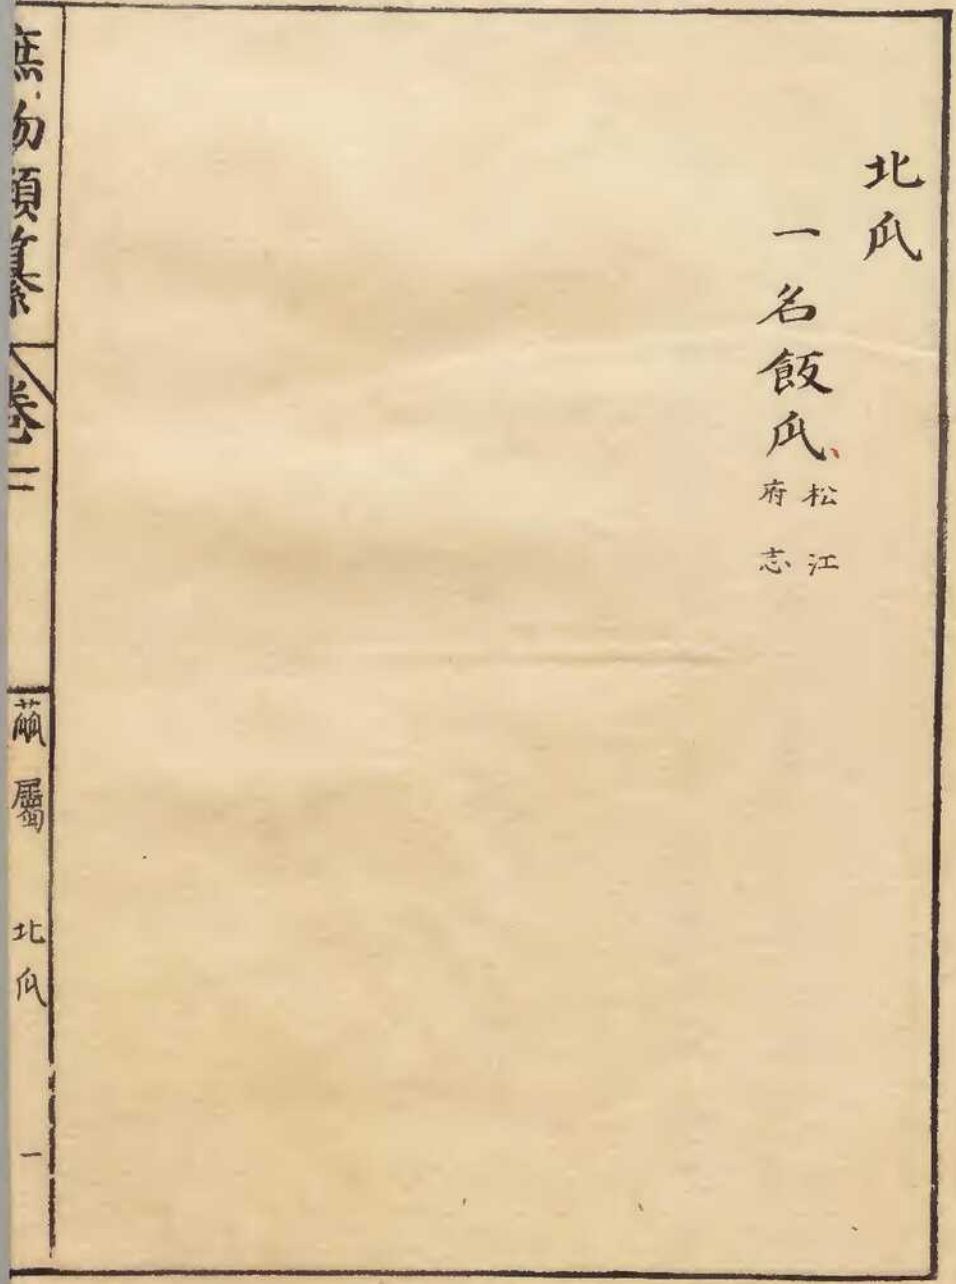 北瓜
一名飯瓜、
松江
府志
庶物類纂
卷二
蓏屬 北瓜 一